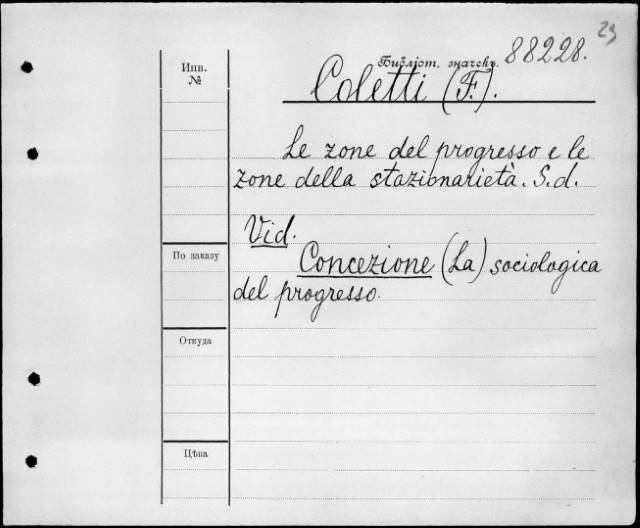 29
Библіот. значекъ. 88228.
Инв.
№
Coletti (F.).
Le zone del progresso e le
zone della stazionarietà. S.d.
Vid.
По заказу
Concezione (La) sociologica
del progresso.
Откуда
Цѣна